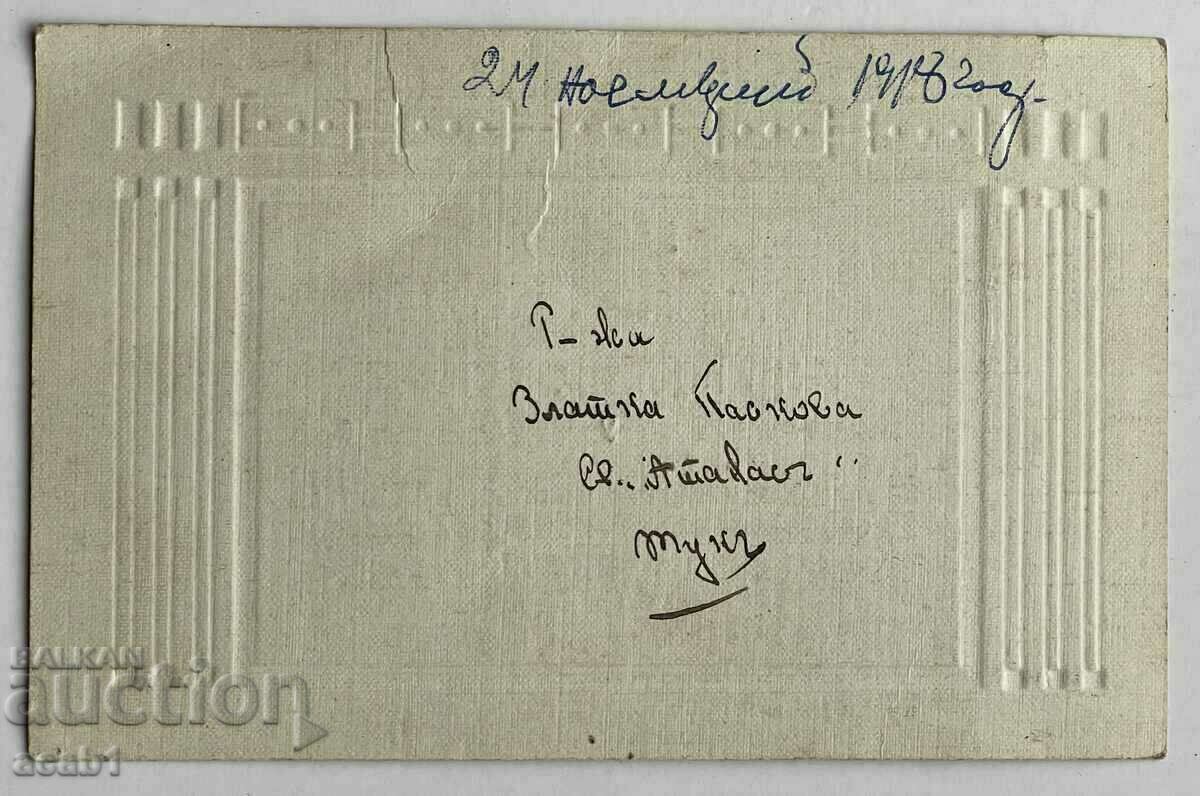 24 Ноемврий 1918 год.
Г-жа
Златка Паскова
Св. „Атанасъ"
тукъ
BALKAN
auction
acab1